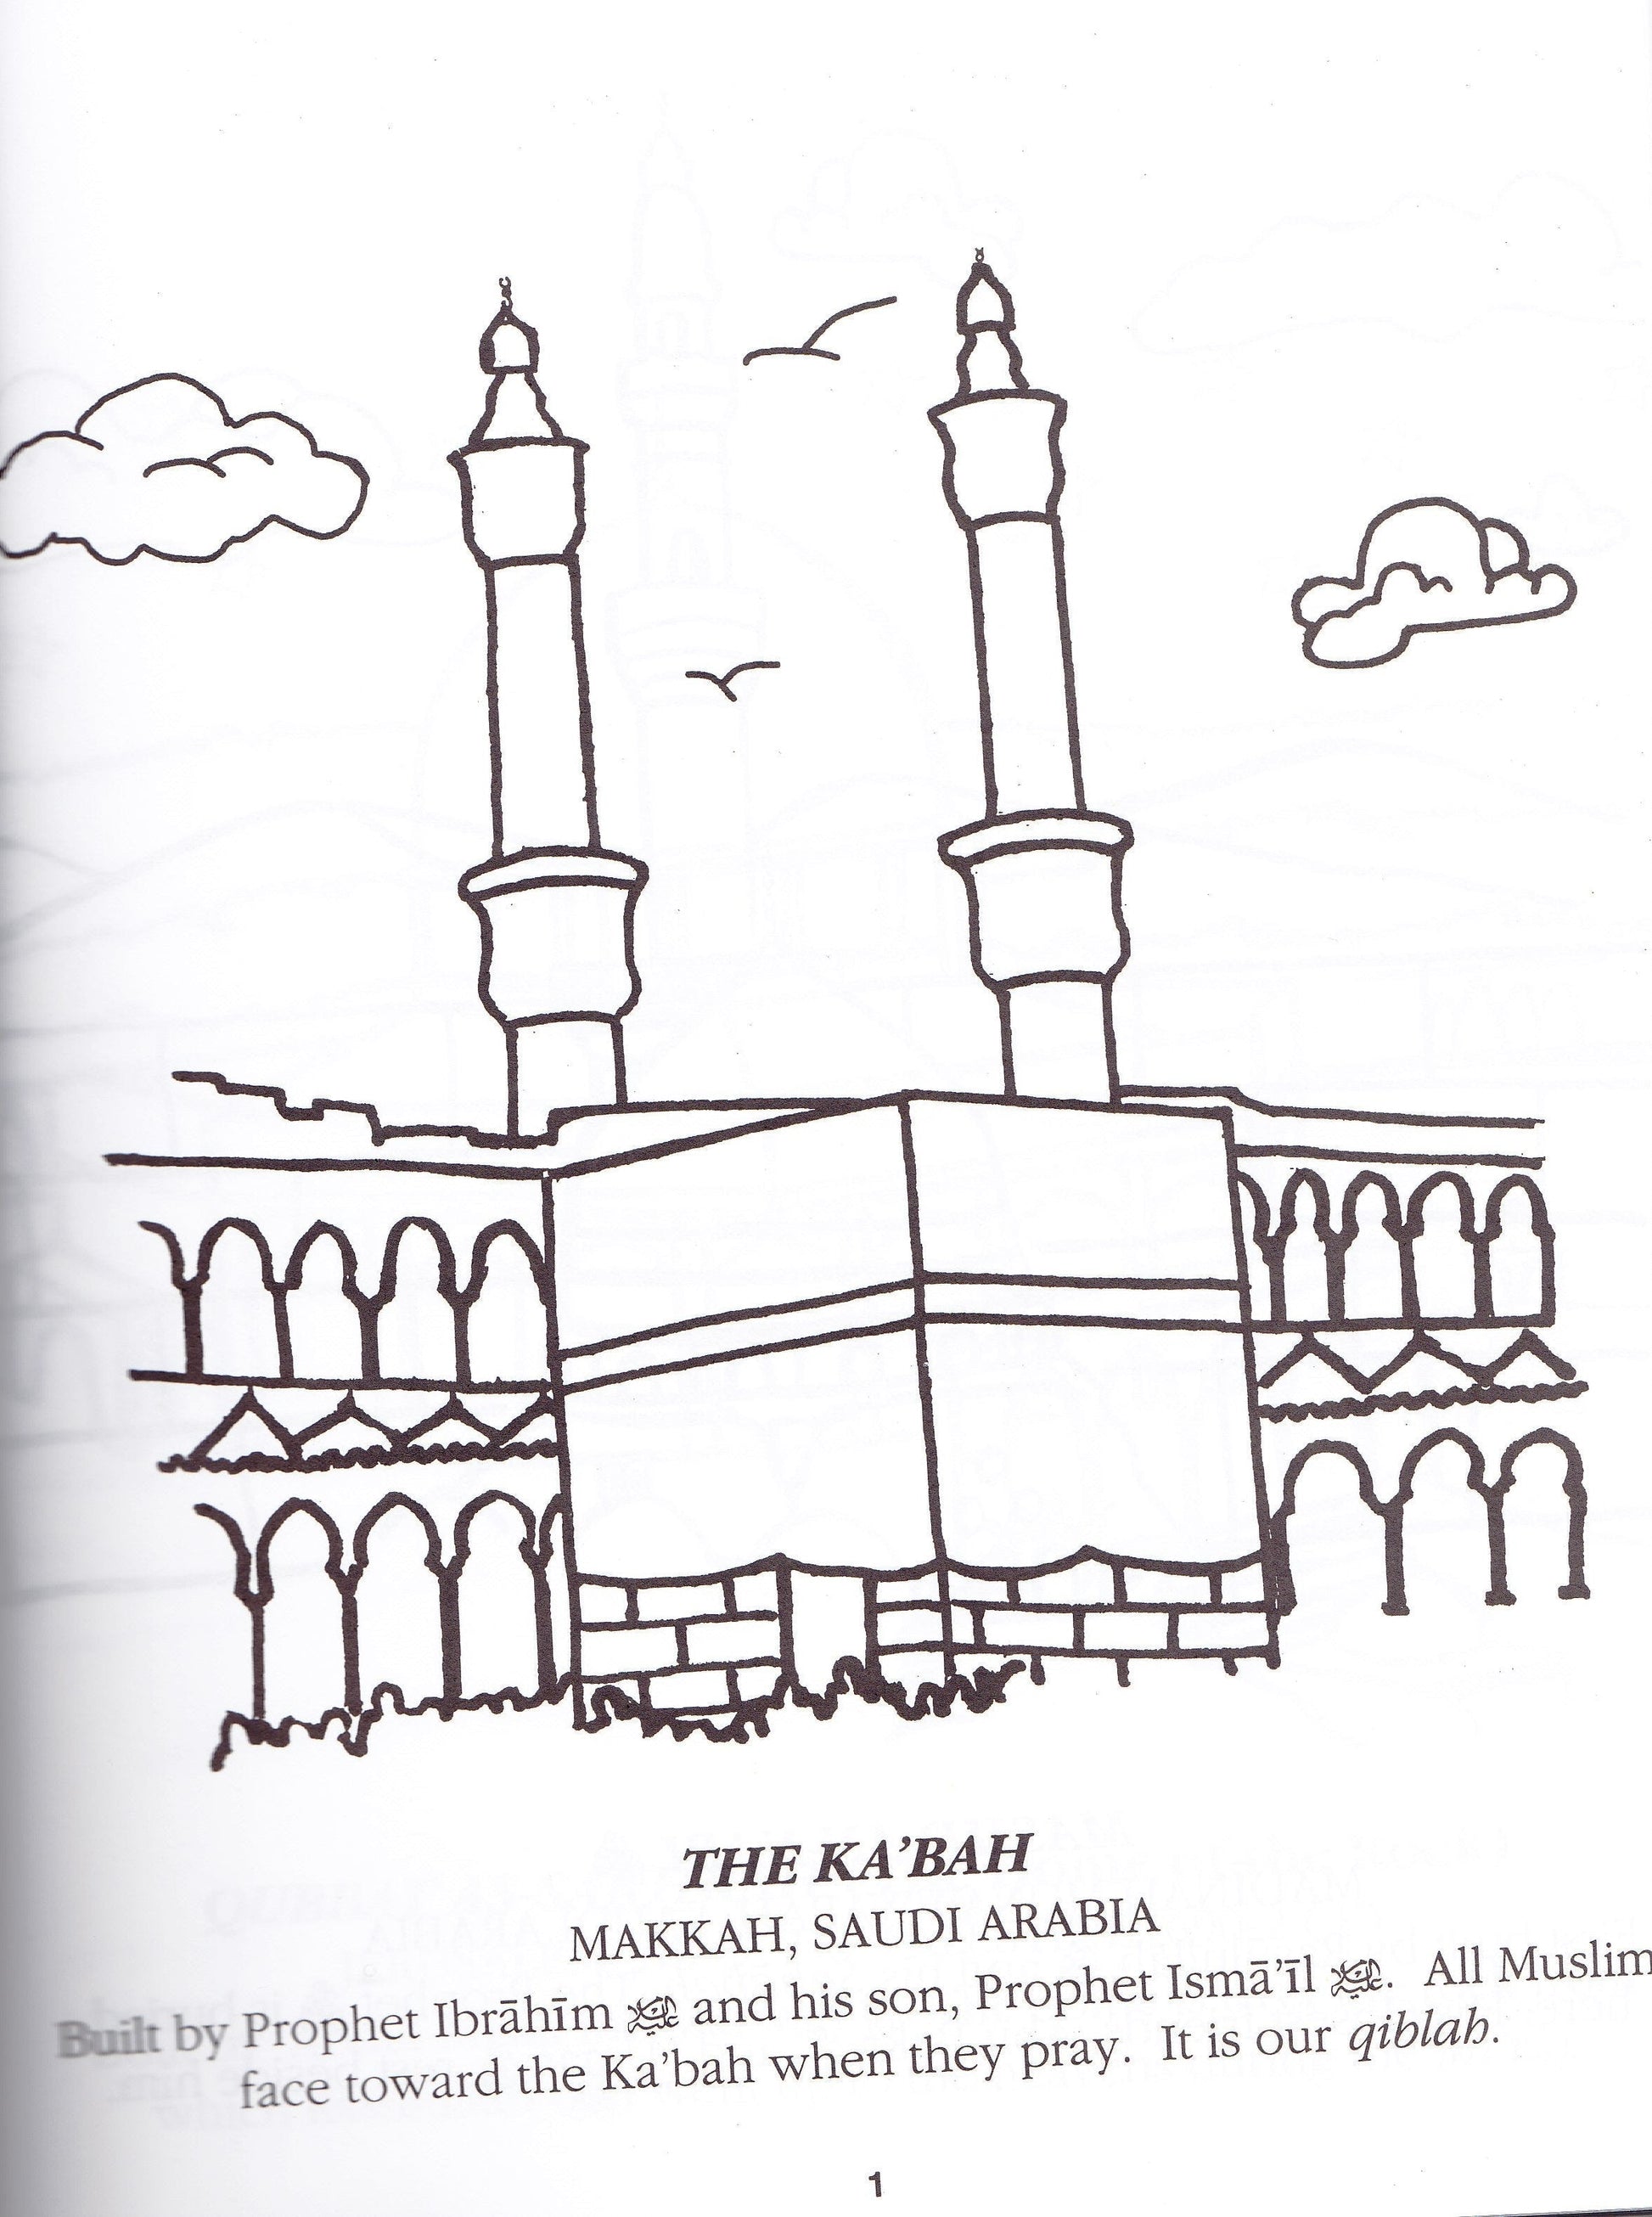 THE KA’BAH
MAKKAH, SAUDI ARABIA
Built by Prophet Ibrāhīm and his son, Prophet Ismā’īl . All Muslim
face toward the Ka’bah when they pray. It is our qiblah.
1